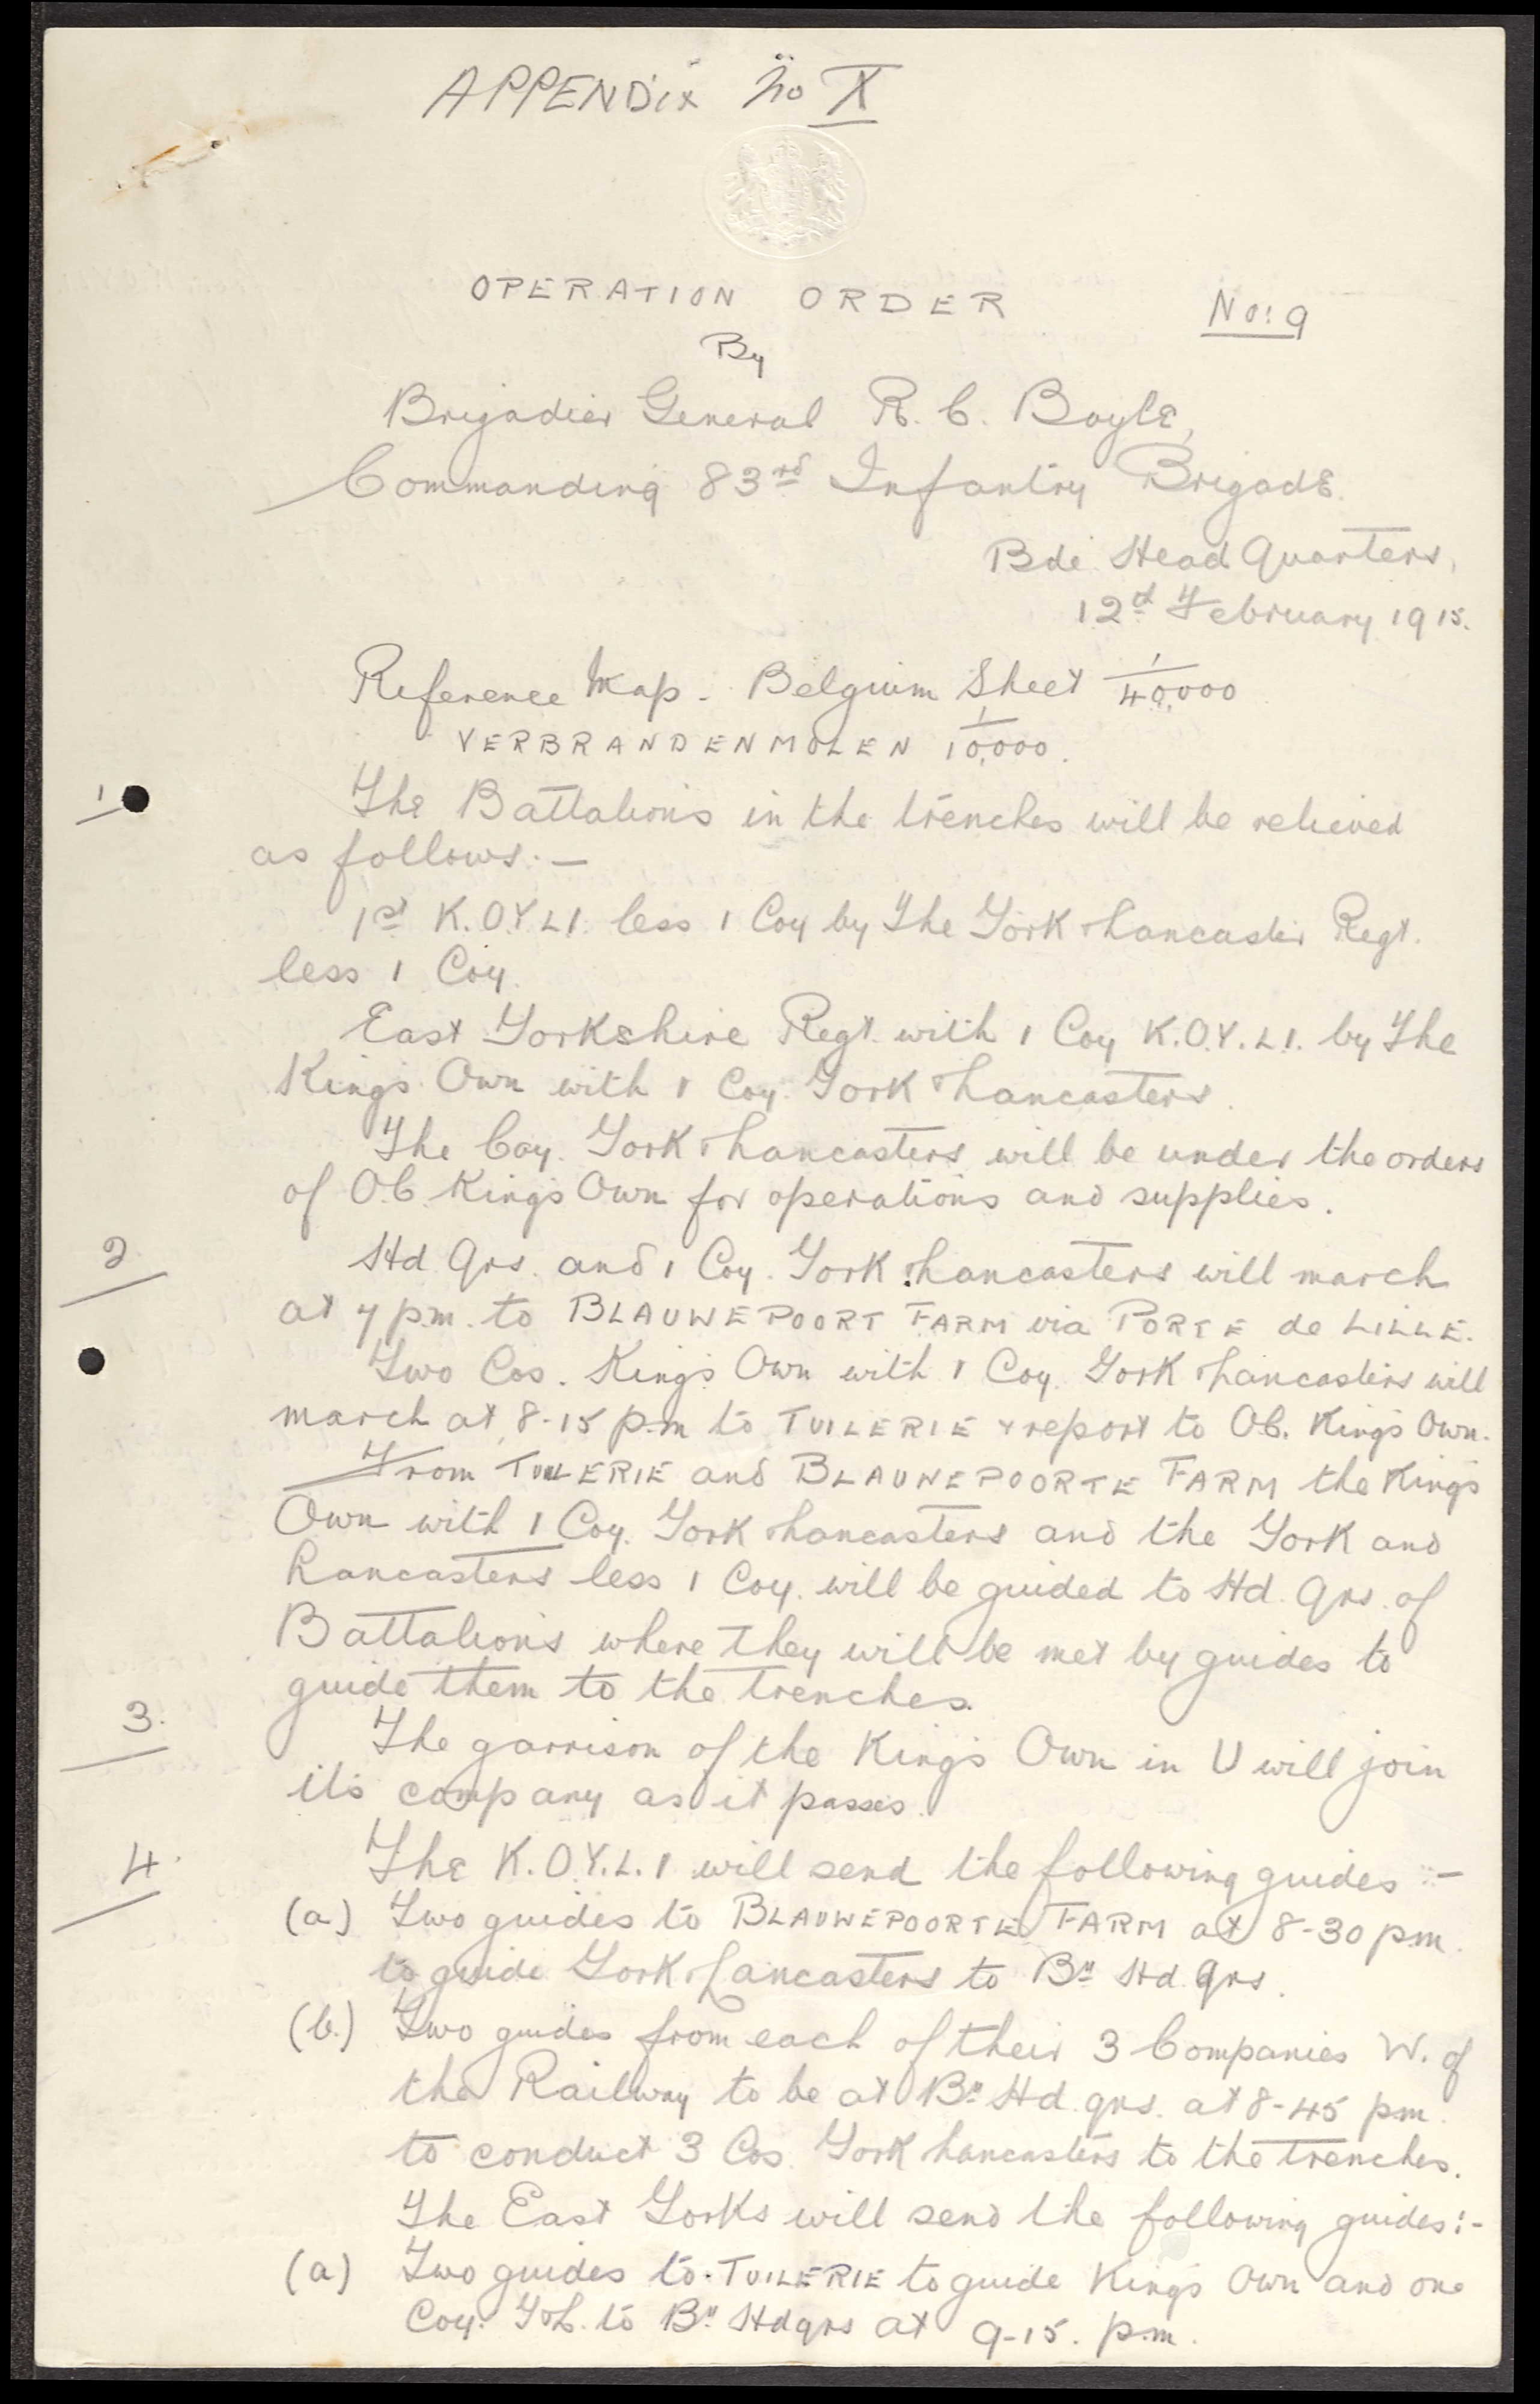 APPENDix No X
OPERATION ORDER No: 9
By
Brigadier General R. C. Boyle,
Commanding 83rd Infantry Brigade.
Bde Head Quarters,
12th February 1915.
Reference Map - Belgium Sheet 1/40,000
VERBRANDENMOLEN 1/10,000.
1 The Battalions in the trenches will be relieved
as follows:—
1st K.O.Y.L.I. less 1 Coy by The York & Lancaster Regt.
less 1 Coy.
East Yorkshire Regt. with 1 Coy K.O.Y.L.I. by The
King's Own with 1 Coy. York & Lancasters.
The Coy. York & Lancasters will be under the orders
of O.C. King's Own for operations and supplies.
2 Hd Qrs. and 1 Coy. York & Lancasters will march
at 7 p.m. to BLAUWEPOORT FARM via PORTE de LILLE.
Two Cos. King's Own with 1 Coy. York & Lancasters will
march at 8-15 p.m to TUILERIE & report to O.C. King's Own.
From TUILERIE and BLAUWEPOORTE FARM the King's
Own with 1 Coy. York & Lancasters and the York and
Lancasters less 1 Coy. will be guided to Hd. Qrs. of
Battalions where they will be met by guides to
guide them to the trenches.
3. The garrison of the King's Own in U will join
its company as it passes.
4. The K.O.Y.L.I will send the following guides :—
(a) Two guides to BLAUWEPOORTE FARM at 8-30 p.m.
to guide York & Lancasters to Bn Hd. Qrs.
(b.) Two guides from each of their 3 Companies W. of
the Railway to be at Bn Hd. qrs. at 8-45 pm.
to conduct 3 Cos. York & Lancasters to the trenches.
The East Yorks will send the following guides:-
(a) Two guides to TUILERIE to guide King's Own and one
Coy. Y&L. to Bn Hdqrs at 9-15. p.m.